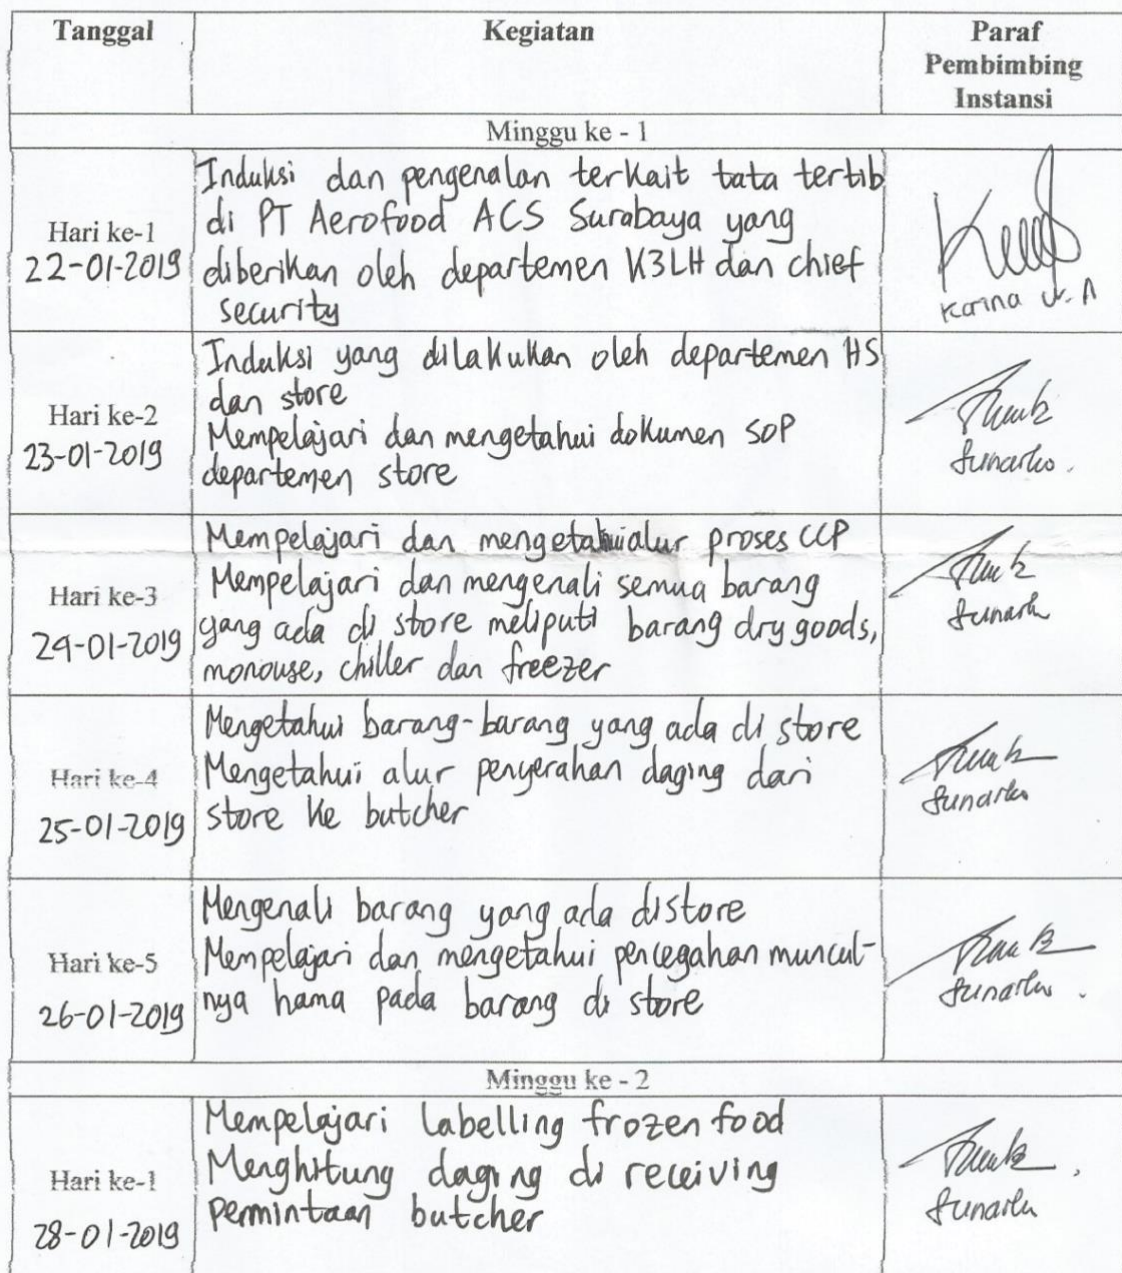 Tanggal Kegiatan Paraf
Pembimbing
Instansi
Minggu ke - 1
Hari ke-1
22-01-2019
Induksi dan pengenalan terkait tata tertib
di PT Aerofood ACS Surabaya yang
diberikan oleh departemen K3LH dan chief
security
Karina W. A
Hari ke-2
23-01-2019
Induksi yang dilakukan oleh departemen HS
dan store
Mempelajari dan mengetahui dokumen SOP
departemen store
Sunarko.
Hari ke-3
24-01-2019
Mempelajari dan mengetahui alur proses CCP
Mempelajari dan mengenali semua barang
yang ada di store meliputi barang dry goods,
monouse, chiller dan freezer
Sunarko
Hari ke-4
25-01-2019
Mengetahui barang-barang yang ada di store
Mengetahui alur penyerahan daging dari
store ke butcher
Sunarko
Hari ke-5
26-01-2019
Mengenali barang yang ada distore
Mempelajari dan mengetahui pencegahan muncul-
nya hama pada barang di store
Sunarko.
Minggu ke - 2
Hari ke-1
28-01-2019
Mempelajari labelling frozen food
Menghitung daging di receiving
permintaan butcher
Sunarko